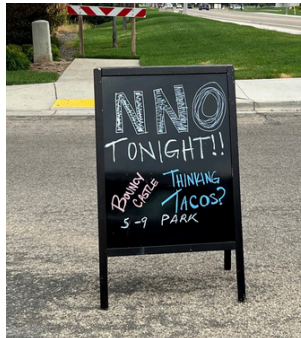 NNO
TONIGHT!!
BOUNCY
CASTLE
THINKING
TACOS?
5-9 PARK